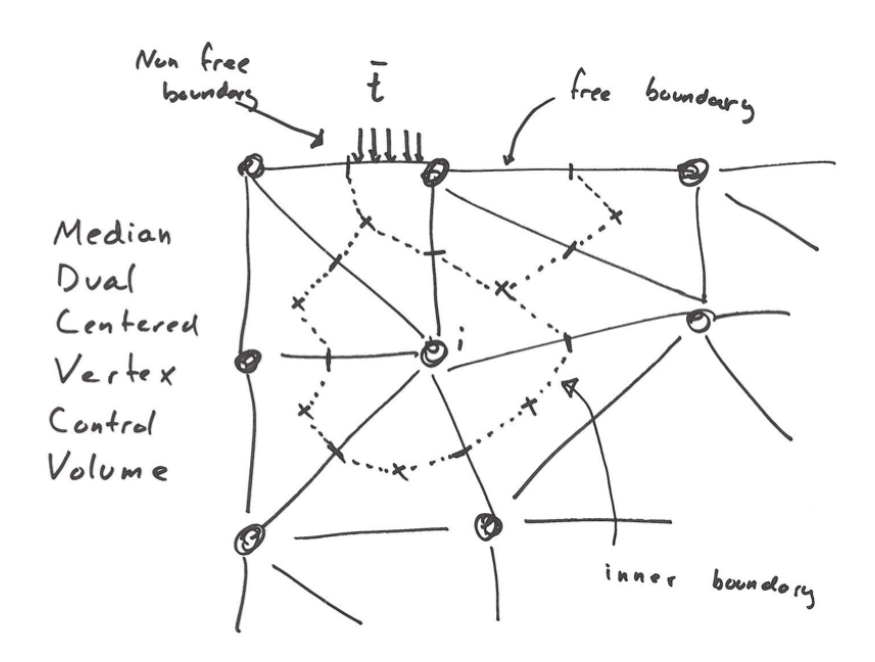 Non free
boundary
t̄
free boundary
Median
Dual
Centered
Vertex
Control
Volume
i
inner boundory